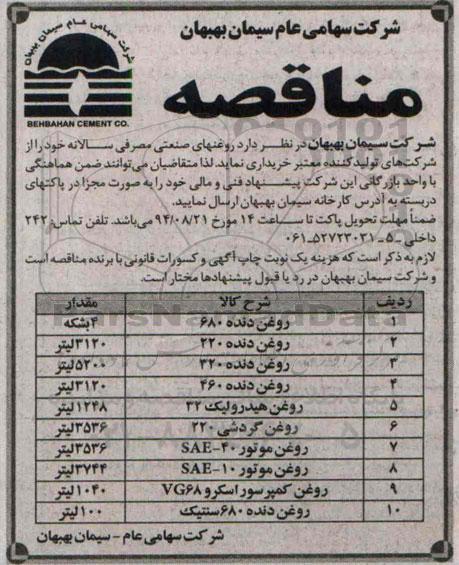 شرکت سهامی عام سیمان بهبهان
شرکت سهامی عام سیمان بهبهان
BEHBAHAN CEMENT CO.
مناقصه
شرکت سیمان بهبهان در نظر دارد روغنهای صنعتی مصرفی سالانه خود را از
شرکت‌های تولید کننده معتبر خریداری نماید. لذا متقاضیان می‌توانند ضمن هماهنگی
با واحد بازرگانی این شرکت پیشنهاد فنی و مالی خود را به صورت مجزا در پاکتهای
دربسته به آدرس کارخانه سیمان بهبهان ارسال نمایید.
ضمناً مهلت تحویل پاکت تا ساعت ۱۴ مورخ ۹۴/۰۸/۲۱ می‌باشد. تلفن تماس: ۲۴۲
داخلی ـ ۵ـ ۵۲۷۲۳۰۳۱-۰۶۱
لازم به ذکر است که هزینه یک نوبت چاپ آگهی و کسورات قانونی با برنده مناقصه است
و شرکت سیمان بهبهان در رد یا قبول پیشنهادها مختار است.
ردیف شرح کالا مقدار
۱ روغن دنده ۶۸۰ ۴بشکه
۲ روغن دنده ۲۲۰ ۳۱۲۰لیتر
۳ روغن دنده ۳۲۰ ۵۲۰۰لیتر
۴ روغن دنده ۴۶۰ ۳۱۲۰لیتر
۵ روغن هیدرولیک ۳۲ ۱۲۴۸لیتر
۶ روغن گردشی ۲۲۰ ۳۵۳۶لیتر
۷ روغن موتور SAE-۴۰ ۳۵۳۶لیتر
۸ روغن موتور SAE-۱۰ ۳۷۴۴لیتر
۹ روغن کمپرسور اسکرو VG۶۸ ۱۰۴۰لیتر
۱۰ روغن دنده ۶۸۰سنتیک ۱۰۰لیتر
شرکت سهامی عام - سیمان بهبهان